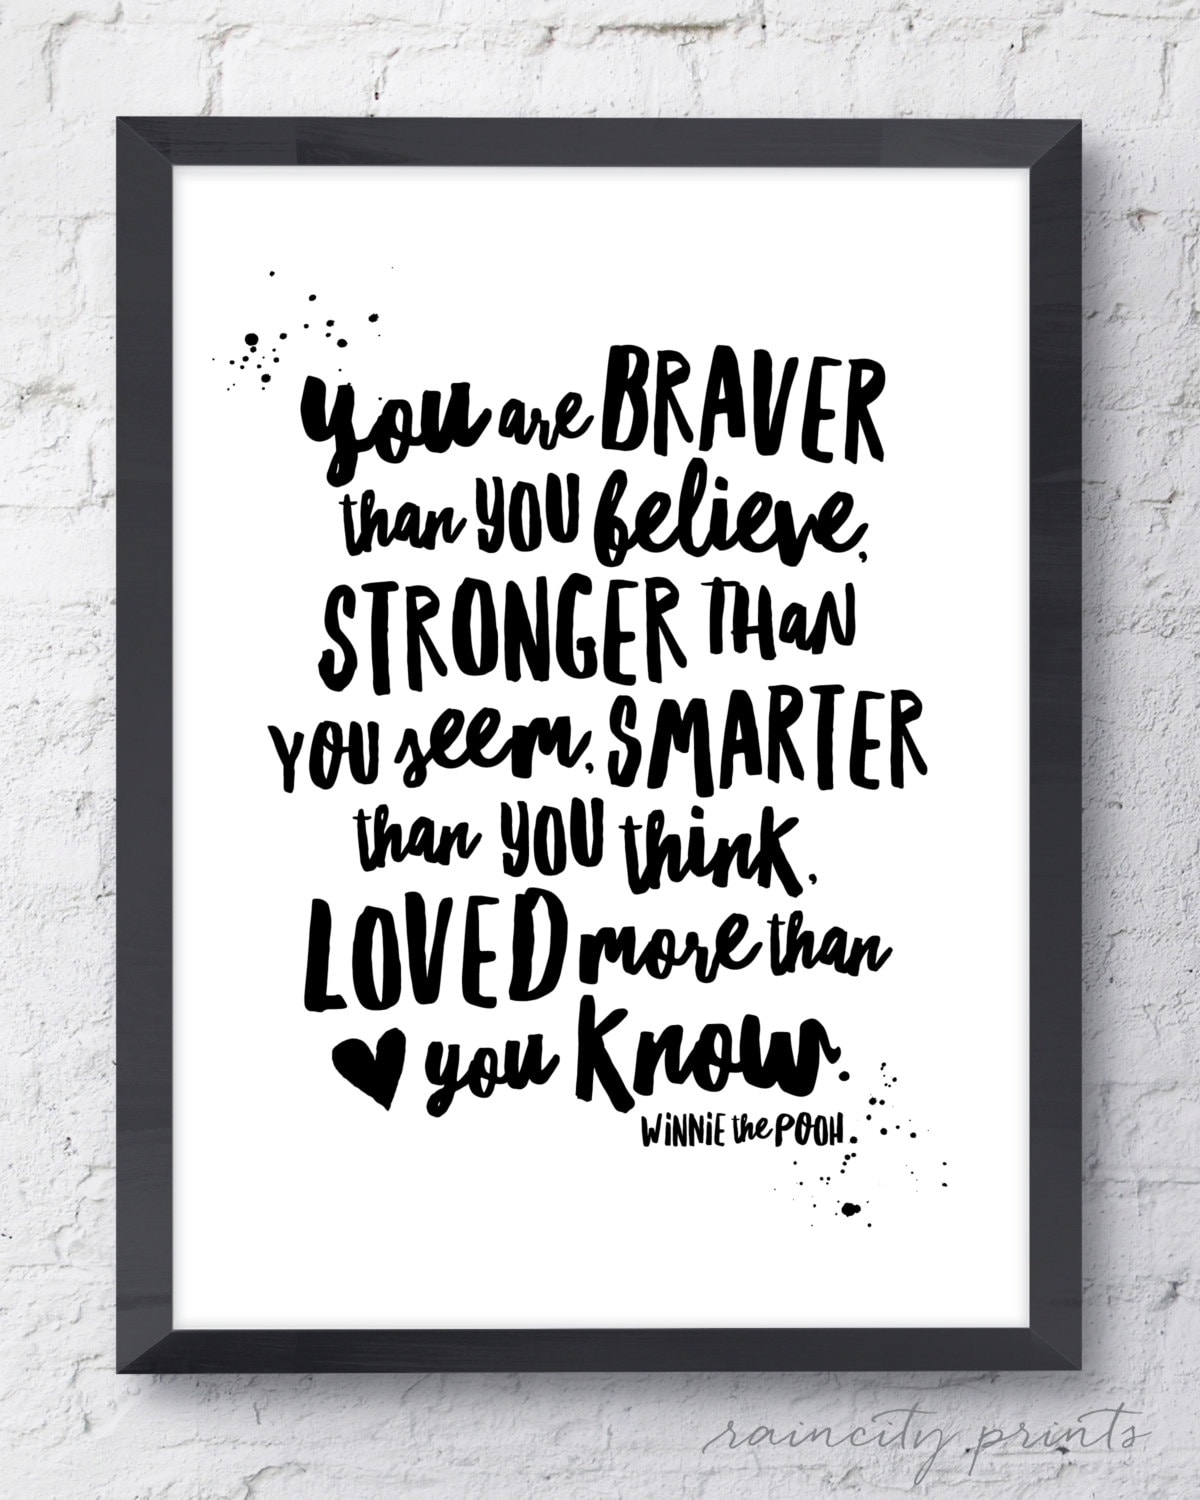 you are BRAVER
than YOU believe,
STRONGER THaN
YOU seem, SMARTER
than YOU think,
LOVED more than
you know.
WiNNiE the POOH.
raincity prints